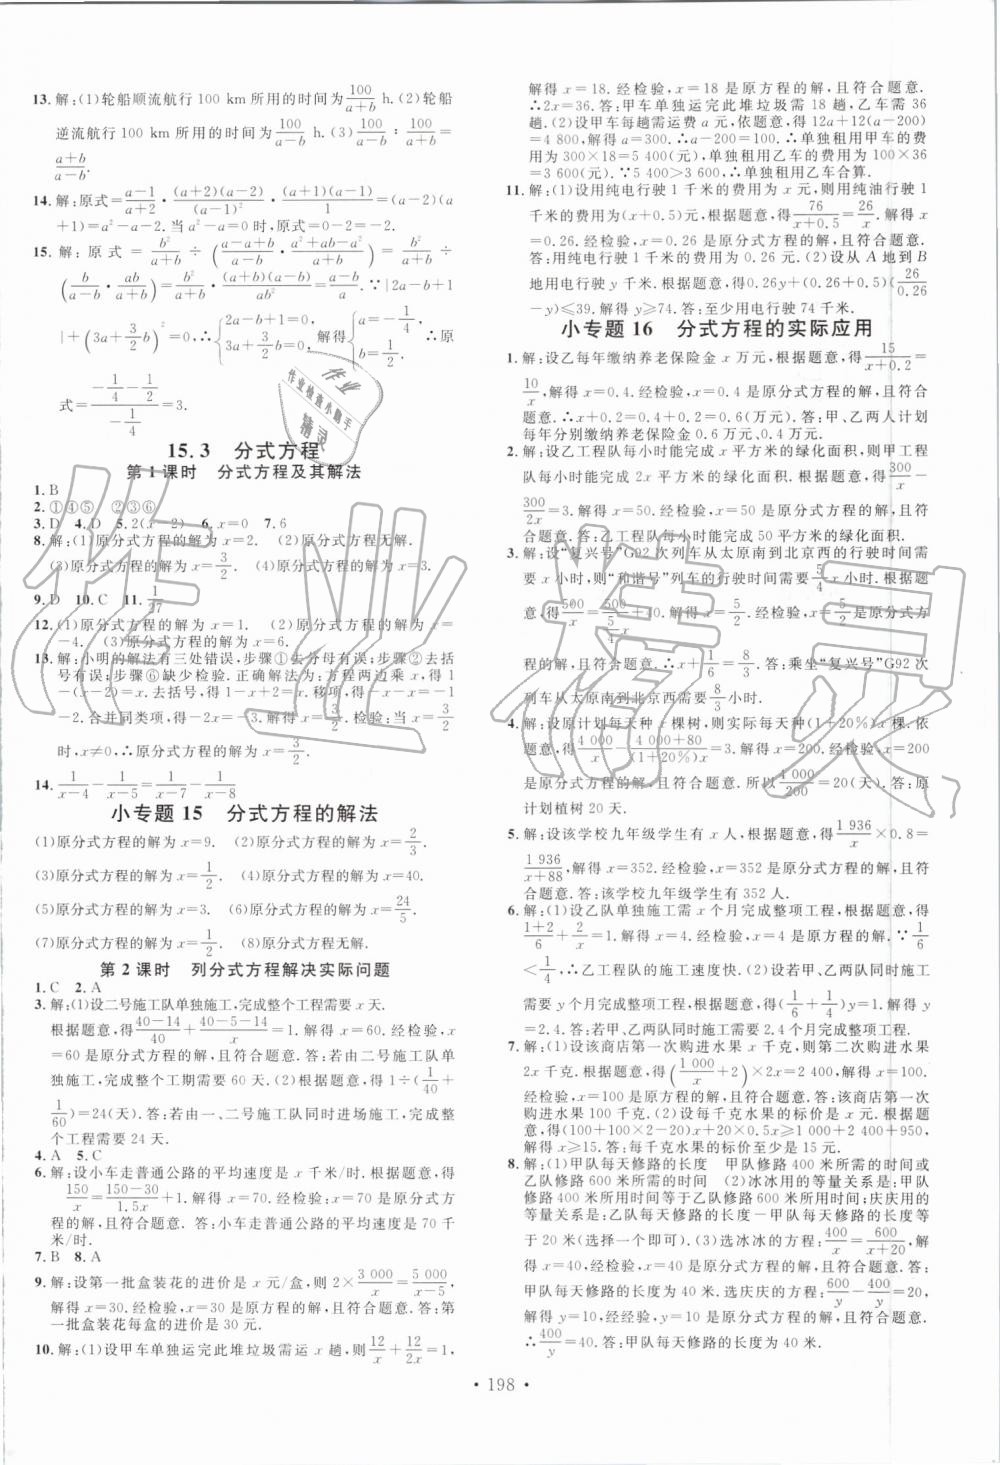 13. 解:(1)轮船顺流航行 100 km 所用的时间为 100/(a+b) h. (2)轮船
逆流航行 100 km 所用的时间为 100/(a−b) h. (3) 100/(a−b) : 100/(a+b) =
(a+b)/(a−b).
14. 解:原式=(a−1)/(a+2)·(a+2)(a−2)/(a−1)²·(a+1)(a−1)/1=(a−2)(a
+1)=a²−a−2. 当 a²−a=0 时,原式=0−2=−2.
15. 解: 原式=b²/(a+b) ÷ (a/(a−b)·(a²+ab−a²)/(a+b))=b²/(a+b) ÷
(a/(a−b)·ab/(a+b))=b²/(a+b)·(a+b)(a−b)/(ab²)=(a−b)/(a²). ∵|2a−b+1
|+(3a+3/2 b)²=0,∴{2a−b+1=0, 3a+3/2 b=0, 解得{a=−1/4, b=1/2. ∴原
式=(−1/4−1/2)/(−1/4)=3.
15.3 分式方程
第 1 课时 分式方程及其解法
1. B
2. ①④⑤ ②③⑥
3. D 4. D 5. 2(x−2) 6. x=0 7. 6
8. 解:(1)原分式方程的解为 x=2. (2)原分式方程无解.
(3)原分式方程的解为 x=3/2. (4)原分式方程的解为 x=3.
9. D 10. C 11. 1/97
12. (1)原分式方程的解为 x=1. (2)原分式方程的解为 x=
−4. (3)原分式方程的解为 x=6.
13. 解:小明的解法有三处错误,步骤①去分母有误;步骤②去括
号有误;步骤⑥缺少检验. 正确解法为:方程两边乘 x,得
1−(x−2)=x. 去括号,得 1−x+2=x.移项,得−x−x=−1
−2.合并同类项,得−2x=−3.解得 x=3/2.检验:当 x=3/2
时,x≠0,∴原分式方程的解为 x=3/2.
14. 1/(x−4)−1/(x−5)=1/(x−7)−1/(x−8)
小专题 15 分式方程的解法
(1)原分式方程的解为 x=9. (2)原分式方程的解为 x=2/3.
(3)原分式方程的解为 x=1/2. (4)原分式方程的解为 x=40.
(5)原分式方程的解为 x=3. (6)原分式方程的解为 x=24/5.
(7)原分式方程的解为 x=1/2. (8)原分式方程无解.
第 2 课时 列分式方程解决实际问题
1. C 2. A
3. 解:(1)设二号施工队单独施工,完成整个工程需要 x 天.
根据题意,得(40−14)/40+(40−5−14)/x=1. 解得 x=60. 经检验,x
=60 是原分式方程的解,且符合题意. 答:若由二号施工队单
独施工,完成整个工期需要 60 天. (2)根据题意,得 1÷(1/40+
1/60)=24(天). 答:若由一、二号施工队同时进场施工,完成整
个工程需要 24 天.
4. A 5. C
6. 解:设小车走普通公路的平均速度是 x 千米/时. 根据题意,得
150/x=(150−30)/1.5x+1. 解得 x=70. 经检验,x=70 是原分式方程
的解,且符合题意. 答:小车走普通公路的平均速度是 70 千
米/时.
7. B 8. A
9. 解:设第一批盒装花的进价是 x 元/盒,则 2×3 000/x=5 000/(x−5),
解得 x=30. 经检验,x=30 是原方程的解,且符合题意. 答:第
一批盒装花每盒的进价是 30 元.
10. 解:(1)设甲车单独运完此堆垃圾需运 x 趟,则 12/x+12/2x=1,
解得 x=18. 经检验,x=18 是原方程的解,且符合题意.
∴2x=36. 答:甲车单独运完此堆垃圾需 18 趟,乙车需 36
趟. (2)设甲车每趟需运费 a 元,依题意,得 12a+12(a−200)=
4 800,解得 a=300. ∴a−200=100. ∴单独租用甲车的费用=
300×18=5 400(元),单独租用乙车的费用=100×36
=3 600(元). ∵5 400>3 600,∴单独租用乙车合算.
11. 解:(1)设用纯电行驶 1 千米的费用为 x 元,则用纯油行驶 1
千米的费用为(x+0.5)元,根据题意,得76/(x+0.5)=26/x. 解得 x
=0.26.经检验,x=0.26 是原分式方程的解,且符合题意.
答:用纯电行驶 1 千米的费用为 0.26 元. (2)设从 A 地到 B
地用电行驶 y 千米. 根据题意,得 0.26y+(0.26+0.5)(26/0.26
−y)≤39. 解得 y≥74. 答:至少用电行驶 74 千米.
小专题 16 分式方程的实际应用
1. 解:设乙每年缴纳养老保险金 x 万元,根据题意,得15/(x+0.2)=
10/x,解得 x=0.4. 经检验,x=0.4 是原分式方程的解,且符合
题意. ∴x+0.2=0.4+0.2=0.6(万元). 答:甲、乙两人计划
每年分别缴纳养老保险金 0.6 万元、0.4 万元.
2. 解:设乙工程队每小时能完成 x 平方米的绿化面积,则甲工程
队每小时能完成 2x 平方米的绿化面积. 根据题意,得300/x−
300/2x=3. 解得 x=50. 经检验,x=50 是原分式方程的解,且符
合题意. 答:乙工程队每小时能完成 50 平方米的绿化面积.
3. 解:设“复兴号”G92 次列车从太原南到北京西的行驶时间需
要 x 小时,则“和谐号”列车的行驶时间需要 5/4 x 小时. 根据题
意,得500/x=500/(5/4 x)+40. 解得 x=5/2. 经检验,x=5/2是原分式方
程的解,且符合题意. ∴x+1/6=8/3. 答:乘坐“复兴号”G92 次
列车从太原南到北京西需要8/3小时.
4. 解:设原计划每天种 x 棵树,则实际每天种(1+20%)x 棵.依
题意,得4 000/x−(4 000+80)/((1+20%)x)=3. 解得 x=200. 经检验,x=200
是原分式方程的解,且符合题意. 所以4 000/200=20(天). 答:原
计划植树 20 天.
5. 解:设该学校九年级学生有 x 人,根据题意,得1 936/x×0.8=
1 936/(x+88),解得 x=352. 经检验,x=352 是原方程的解,且符
合题意. 答:该学校九年级学生有 352 人.
6. 解:(1)设乙队单独施工需 x 个月完成整项工程,根据题意,得
(1+2)/6+2/x=1. 解得 x=4. 经检验,x=4 是原方程的根. ∵1/6<
1/4,∴乙工程队的施工速度快. (2)设若甲、乙两队同时施工
需要 y 个月完成整项工程,根据题意,得(1/6+1/4)y=1. 解得 y
=2.4. 答:若甲、乙两队同时施工需要 2.4 个月完成整项工程.
7. 解:(1)设该商店第一次购进水果 x 千克,则第二次购进水果
2x 千克. 根据题意,得(1 000/x+2)×2x=2 400,解得 x=100.
经检验,x=100 是原方程的解,且符合题意. 答:该商店第一次
购进水果 100 千克. (2)设每千克水果的标价是 x 元. 根据题
意,得(100+100×2−20)x+20×0.5x≥1 000+2 400+950,
解得 x≥15. 答:每千克水果的标价至少是 15 元.
8. 解:(1)甲队每天修路的长度 甲队修路 400 米所需的时间或
乙队修路 600 米所需的时间 (2)冰冰用的等量关系是:甲队
修路 400 米所用时间等于乙队修路 600 米所用时间;庆庆用的
等量关系是:乙队每天修路的长度与甲队每天修路的长度的差等
于 20 米(选择一个即可). (3)选冰冰的方程:400/x=600/(x+20). 解
得 x=40. 经检验,x=40 是原分式方程的解,且符合题意. 答:
甲队每天修路的长度为 40 米. 选庆庆的方程:600/y−400/y=20,
解得 y=10,经经验,y=10 是原分式方程的解,且符合题意.
∴400/y=40. 答:甲队每天修路的长度为 40 米.
• 198 •
作业精灵
作业检查小助手
作业
精灵